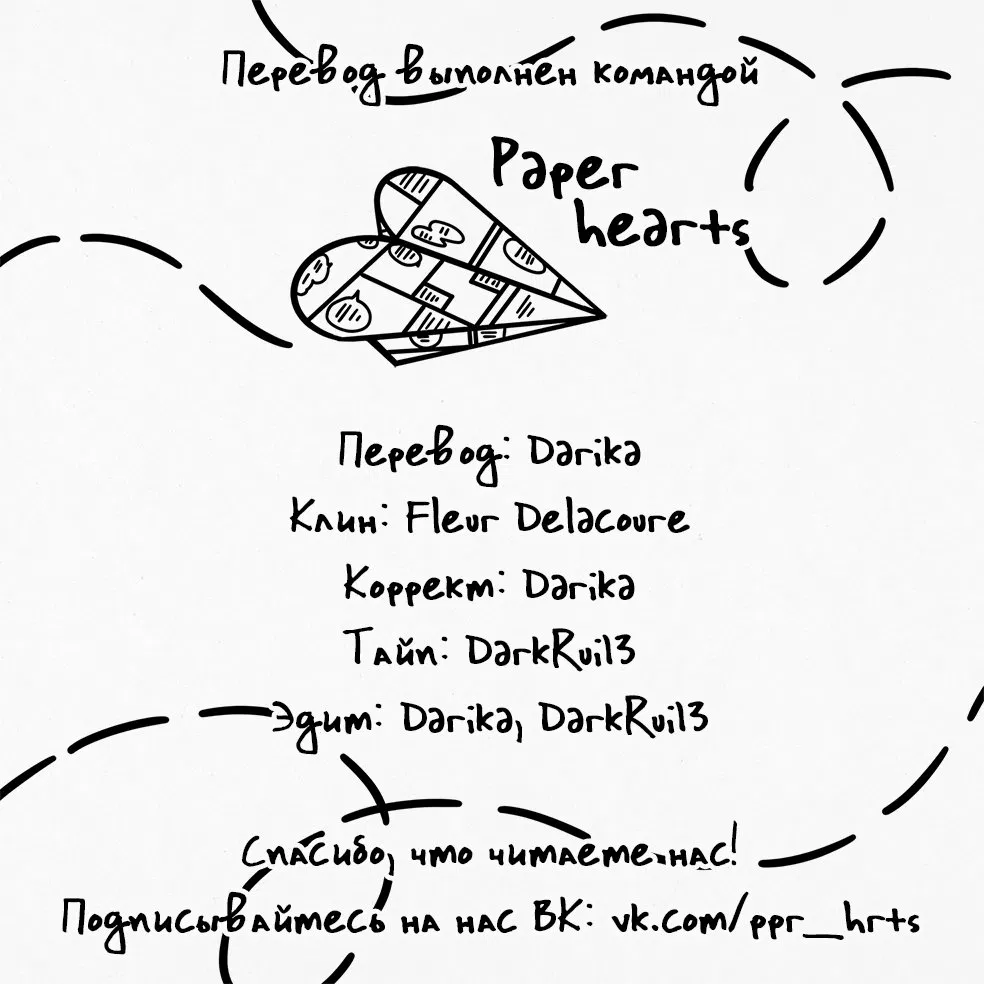 Перевод выполнен командой
Paper
hearts
Перевод: Darika
Клин: Fleur Delacoure
Коррект: Darika
Тайп: DarkRui13
Эдит: Darika, DarkRui13
Спасибо, что читаете нас!
Подписывайтесь на нас ВК: vk.com/ppr_hrts